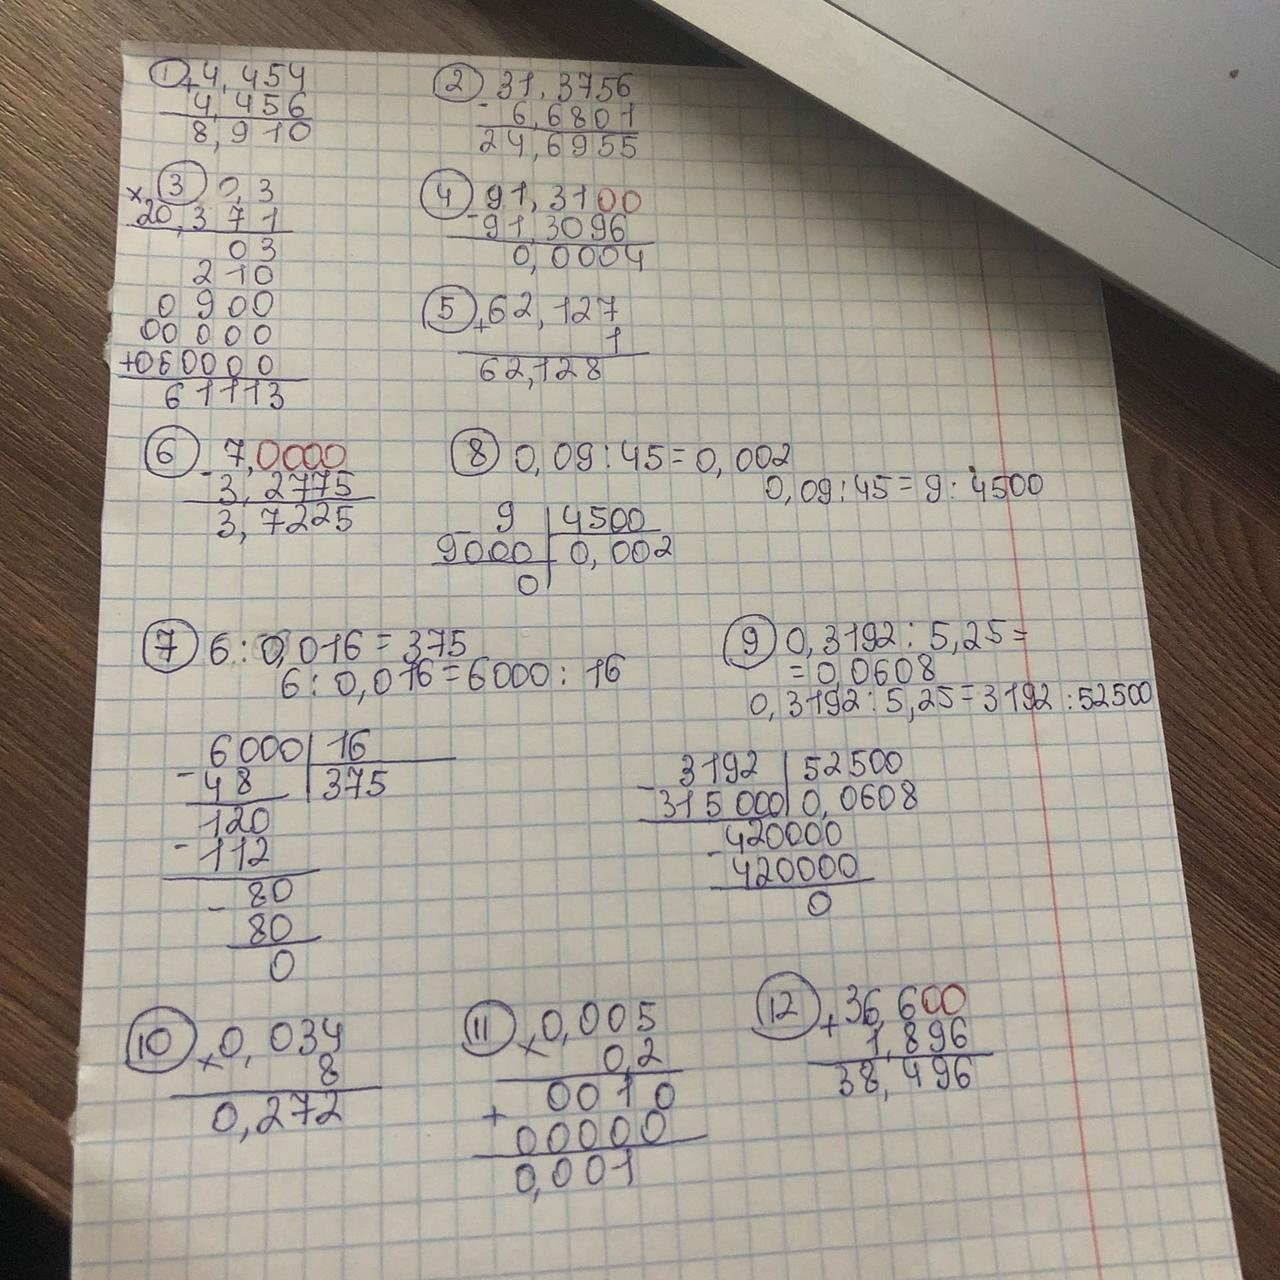 ① + 4,454
4,456
8,910
② 31,3756
- 6,6801
24,6955
③ 0,3
× 20,371
03
210
0900
00000
+060000
61113
④ 91,3100
- 91,3096
0,0004
⑤ 62,127
+ 1
62,128
⑥ 7,0000
- 3,2775
3,7225
⑧ 0,09:45=0,002
0,09:45=9:4500
9 | 4500
9000 | 0,002
0
⑦ 6:0,016=375
6:0,016=6000:16
6000 | 16
- 48 | 375
120
- 112
- 80
80
0
⑨ 0,3192:5,25=
=0,0608
0,3192:5,25=3192:52500
3192 | 52500
- 315000 | 0,0608
420000
- 420000
0
⑩ 0,034
× 8
0,272
⑪ 0,005
× 0,2
0010
+ 00000
0,001
⑫ + 36,600
1,896
38,496